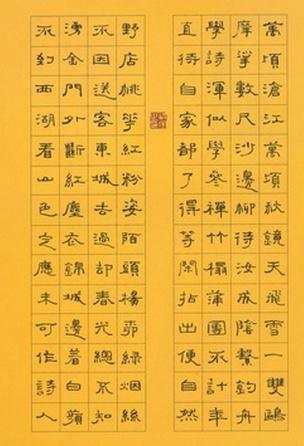 萬頃滄江萬頃秋鏡天飛雪一雙鷗
摩挲數尺沙邊柳待汝成陰繫釣舟
學詩渾似學參禪竹榻蒲團不計年
直待自家都了得等閑拈出便自然
野店桃華紅粉姿陌頭楊柳綠烟絲
不因送客東城去過却春光總不知
湧金門外斷紅塵衣錦城邊着白蘋
不到西湖看山色定應未可作詩人